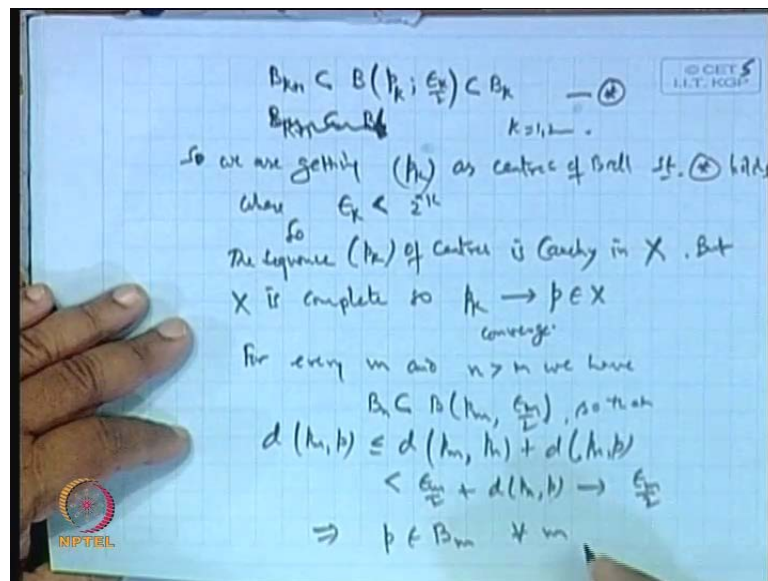 © CET 5
I.I.T. KGP
B_{k+1} ⊂ B(p_k; ε_k/2) ⊂ B_k — ⊛
k=1,2—.
So we are getting (p_k) as centres of Ball st. ⊛ holds
where ε_k < 2^{-k}
So
The sequence (p_k) of centres is Cauchy in X. But
X is complete so p_k → p ∈ X
converge.
For every m and n > m we have
B_n ⊂ B(p_m, ε_m/2), so that
d(p_m, p) ≤ d(p_m, p_n) + d(p_n, p)
< ε_m/2 + d(p_n, p) → ε_m/2
⇒ p ∈ B_m ∀ m
NPTEL